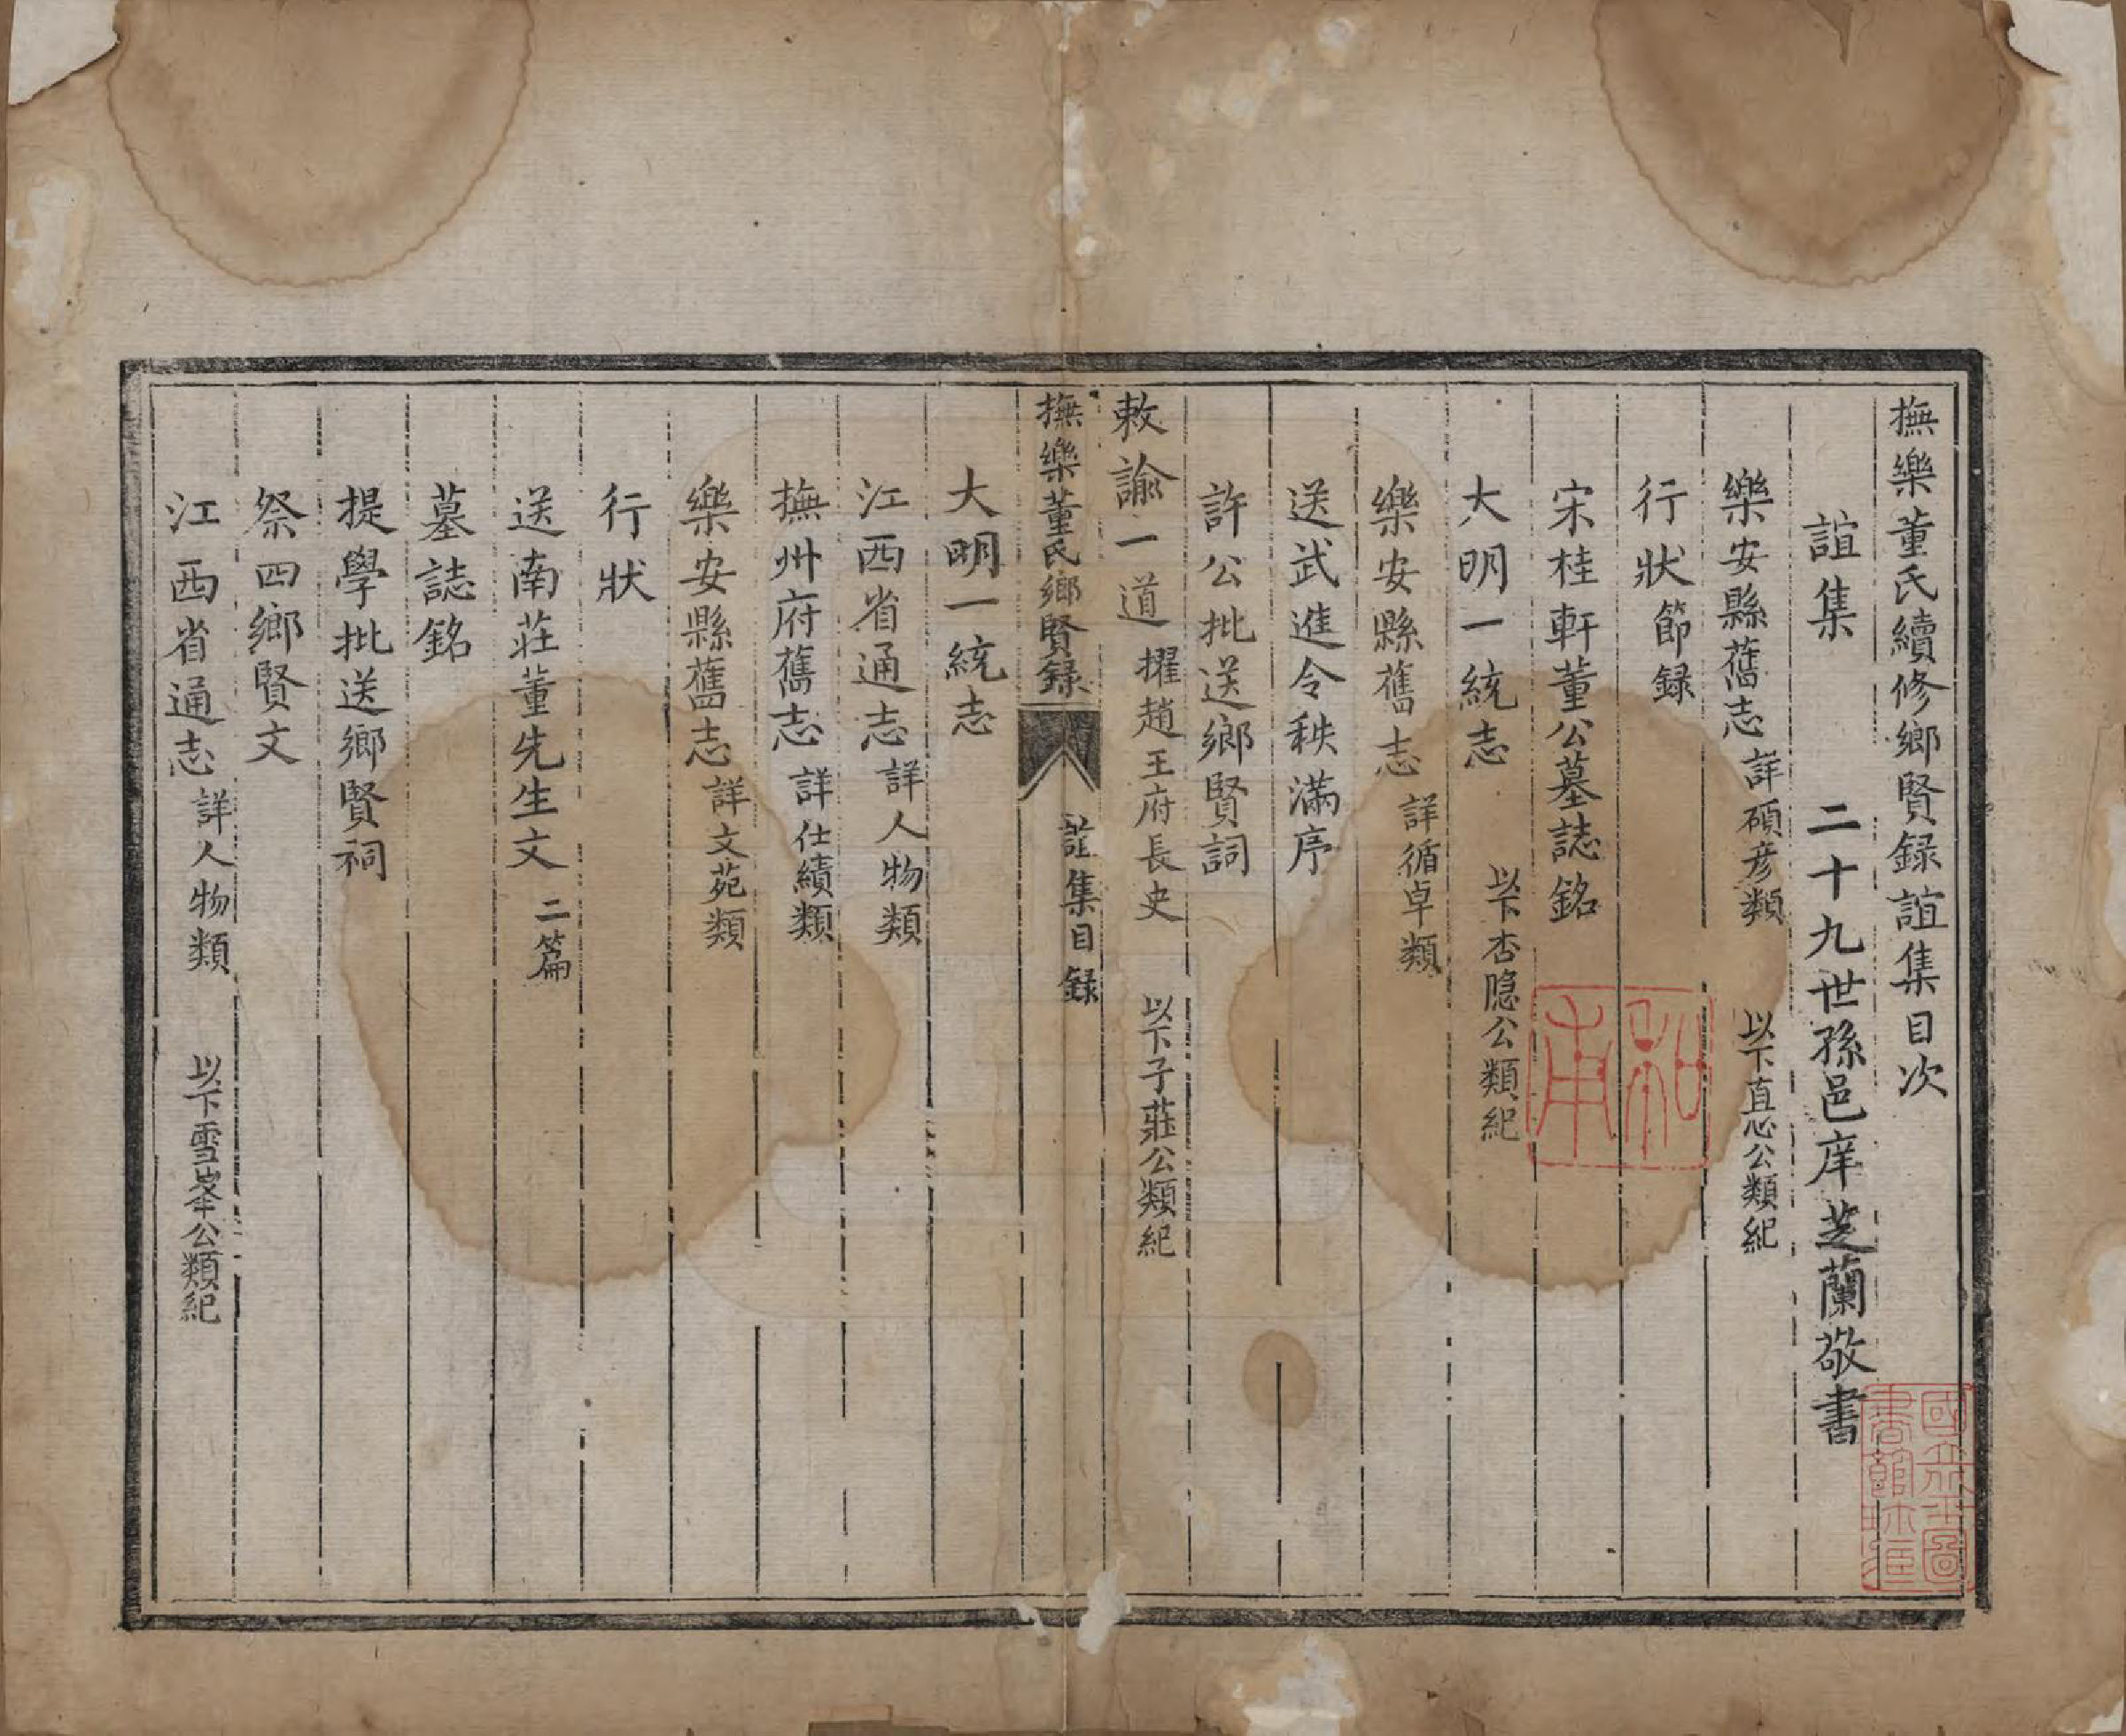 撫樂董氏續修鄉賢録誼集目次
誼集 二十九世孫邑庠芝蘭敬書
樂安縣舊志 詳碩彦類 以下直心公類紀
行狀節録
宋桂軒董公墓誌銘
大明一統志 以下杏隐公類紀
樂安縣舊志 詳循卓類
送武進令秩滿序
許公批送鄉賢詞
敕諭一道 擢趙王府長史 以下子莊公類紀
撫樂董氏鄉賢録 誼集目録
大明一統志
江西省通志 詳人物類
撫州府舊志 詳仕績類
樂安縣舊志 詳文苑類
行狀
送南莊董先生文 二篇
墓誌銘
提學批送鄉賢祠
祭四鄉賢文
江西省通志 詳人物類 以下雪峯公類紀